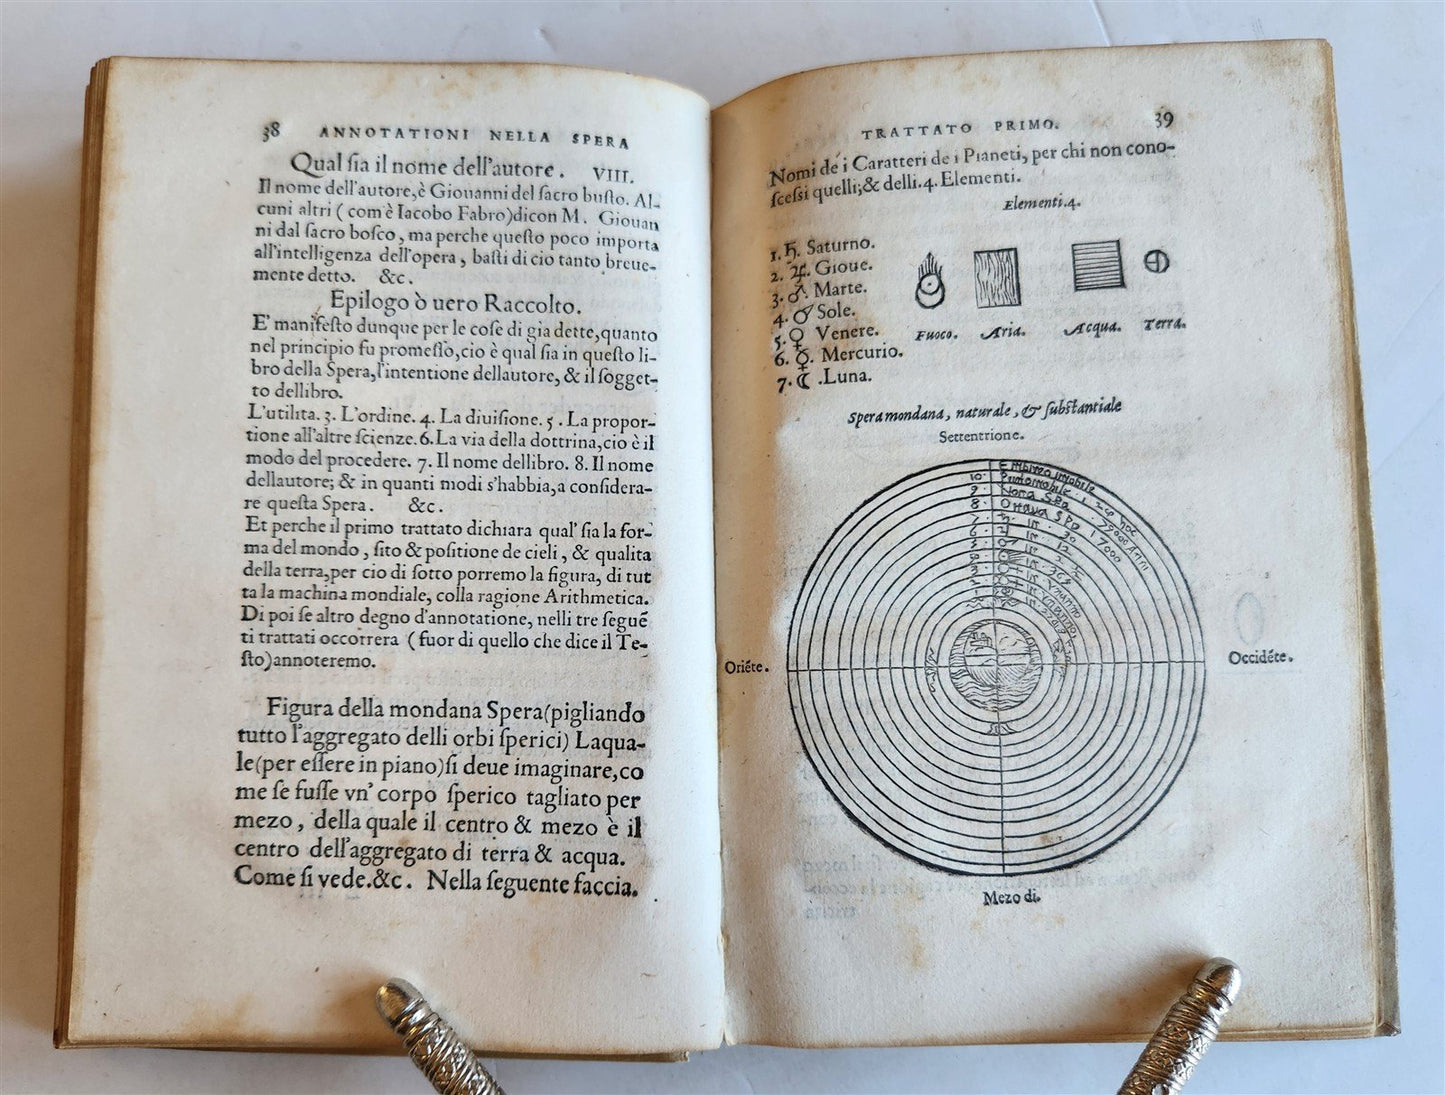 38 ANNOTATIONI NELLA SPERA
Qual ſia il nome dell'autore. VIII.
Il nome dell'autore,è Giouanni del ſacro buſto. Al-
cuni altri ( com'è Iacobo Fabro)dicon M. Giouan
ni dal ſacro boſco, ma perche queſto poco importa
all'intelligenza dell'opera, baſti di cio tanto breue-
mente detto. &c.
Epilogo ò uero Raccolto.
E' manifeſto dunque per le coſe di gia dette,quanto
nel principio fu promeſſo,cio è qual ſia in queſto li-
bro della Spera,l'intentione dellautore, & il ſogget-
to dellibro.
L'utilita. 3. L'ordine. 4. La diuiſione. 5. La propor-
tione all'altre ſcienze. 6. La via della dottrina,cio è il
modo del procedere. 7. Il nome dellibro. 8. Il nome
dellautore; & in quanti modi s'habbia,a conſidera-
re queſta Spera. &c.
Et perche il primo trattato dichiara qual' ſia la for-
ma del mondo, ſito & poſitione de cieli, & qualita
della terra,per cio di ſotto porremo la figura, di tut
ta la machina mondiale, colla ragione Arithmetica.
Di poi ſe altro degno d'annotatione, nelli tre ſeguẽ
ti trattati occorrera (fuor di quello che dice il Te-
ſto)annoteremo.
Figura della mondana Spera(pigliando
tutto l'aggregato delli orbi ſperici) Laqua-
le(per eſſere in piano)ſi deue imaginare,co
me ſe fuſſe vn' corpo ſperico tagliato per
mezo, della quale il centro & mezo è il
centro dell'aggregato di terra & acqua.
Come ſi vede.&c. Nella ſeguente faccia.
TRATTATO PRIMO. 39
Nomi de i Caratteri de i Pianeti, per chi non cono-
ſceſsi quelli;& delli.4. Elementi.
Elementi.4.
1. ♄. Saturno.
2. ♃. Gioue.
3. ♂. Marte.
4. ♂ Sole.
5. ♀ Venere.
6. ☿. Mercurio.
7. ☾ .Luna.
Fuoco. Aria. Acqua. Terra.
Spera mondana, naturale, & ſubſtantiale
Settentrione.
10.
9.
8.
7.
6.
Oriẽte.
Occidẽte.
Mezo di.